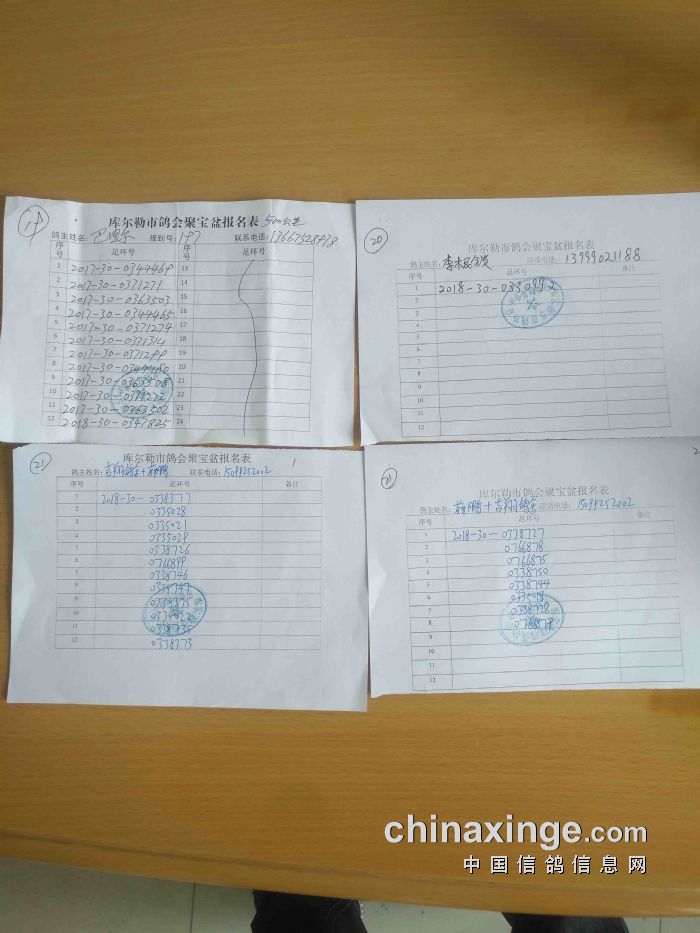 19
库尔勒市鸽会聚宝盆报名表 500公里
鸽主姓名: 报到号: 197 联系电话:
序号 足环号 序号 足环号
1 2017-30-0344469 13
2 2017-30-0371271 14
3 2017-30-0363503 15
4 2017-30-0344465 16
5 2017-30-0371274 17
6 2017-30-0371314 18
7 2017-30-0371299 19
8 2017-30- 20
9 2017-30-0363508 21
10 2017-30- 22
11 2017-30-0363502 23
12 2018-30-0347825 24
20
库尔勒市鸽会聚宝盆报名表
鸽主姓名: 联系电话: 13999021188
序号 足环号 备注
1 2018-30-0330992
2
3
4
5
6
7
8
9
10
11
12
21
库尔勒市鸽会聚宝盆报名表
1
鸽主姓名: 吉翔鸽舍+薛鹏 联系电话: 15099252002
序号 足环号 备注
1 2018-30-0338377
2 0335028
3 0335021
4 0335029
5 0338726
6 0766899
7 0338746
8 0338747
9 0338375
10
11
12 0338373
21
库尔勒市鸽会聚宝盆报名表
2
鸽主姓名: 薛鹏+吉翔鸽舍 联系电话: 15099252002
序号 足环号 备注
1 2018-30-0338727
2 0766878
3 0766875
4 0338750
5 0338744
6
7 0338728
8
9
10
11
12
chinaxinge.com
中国信鸽信息网